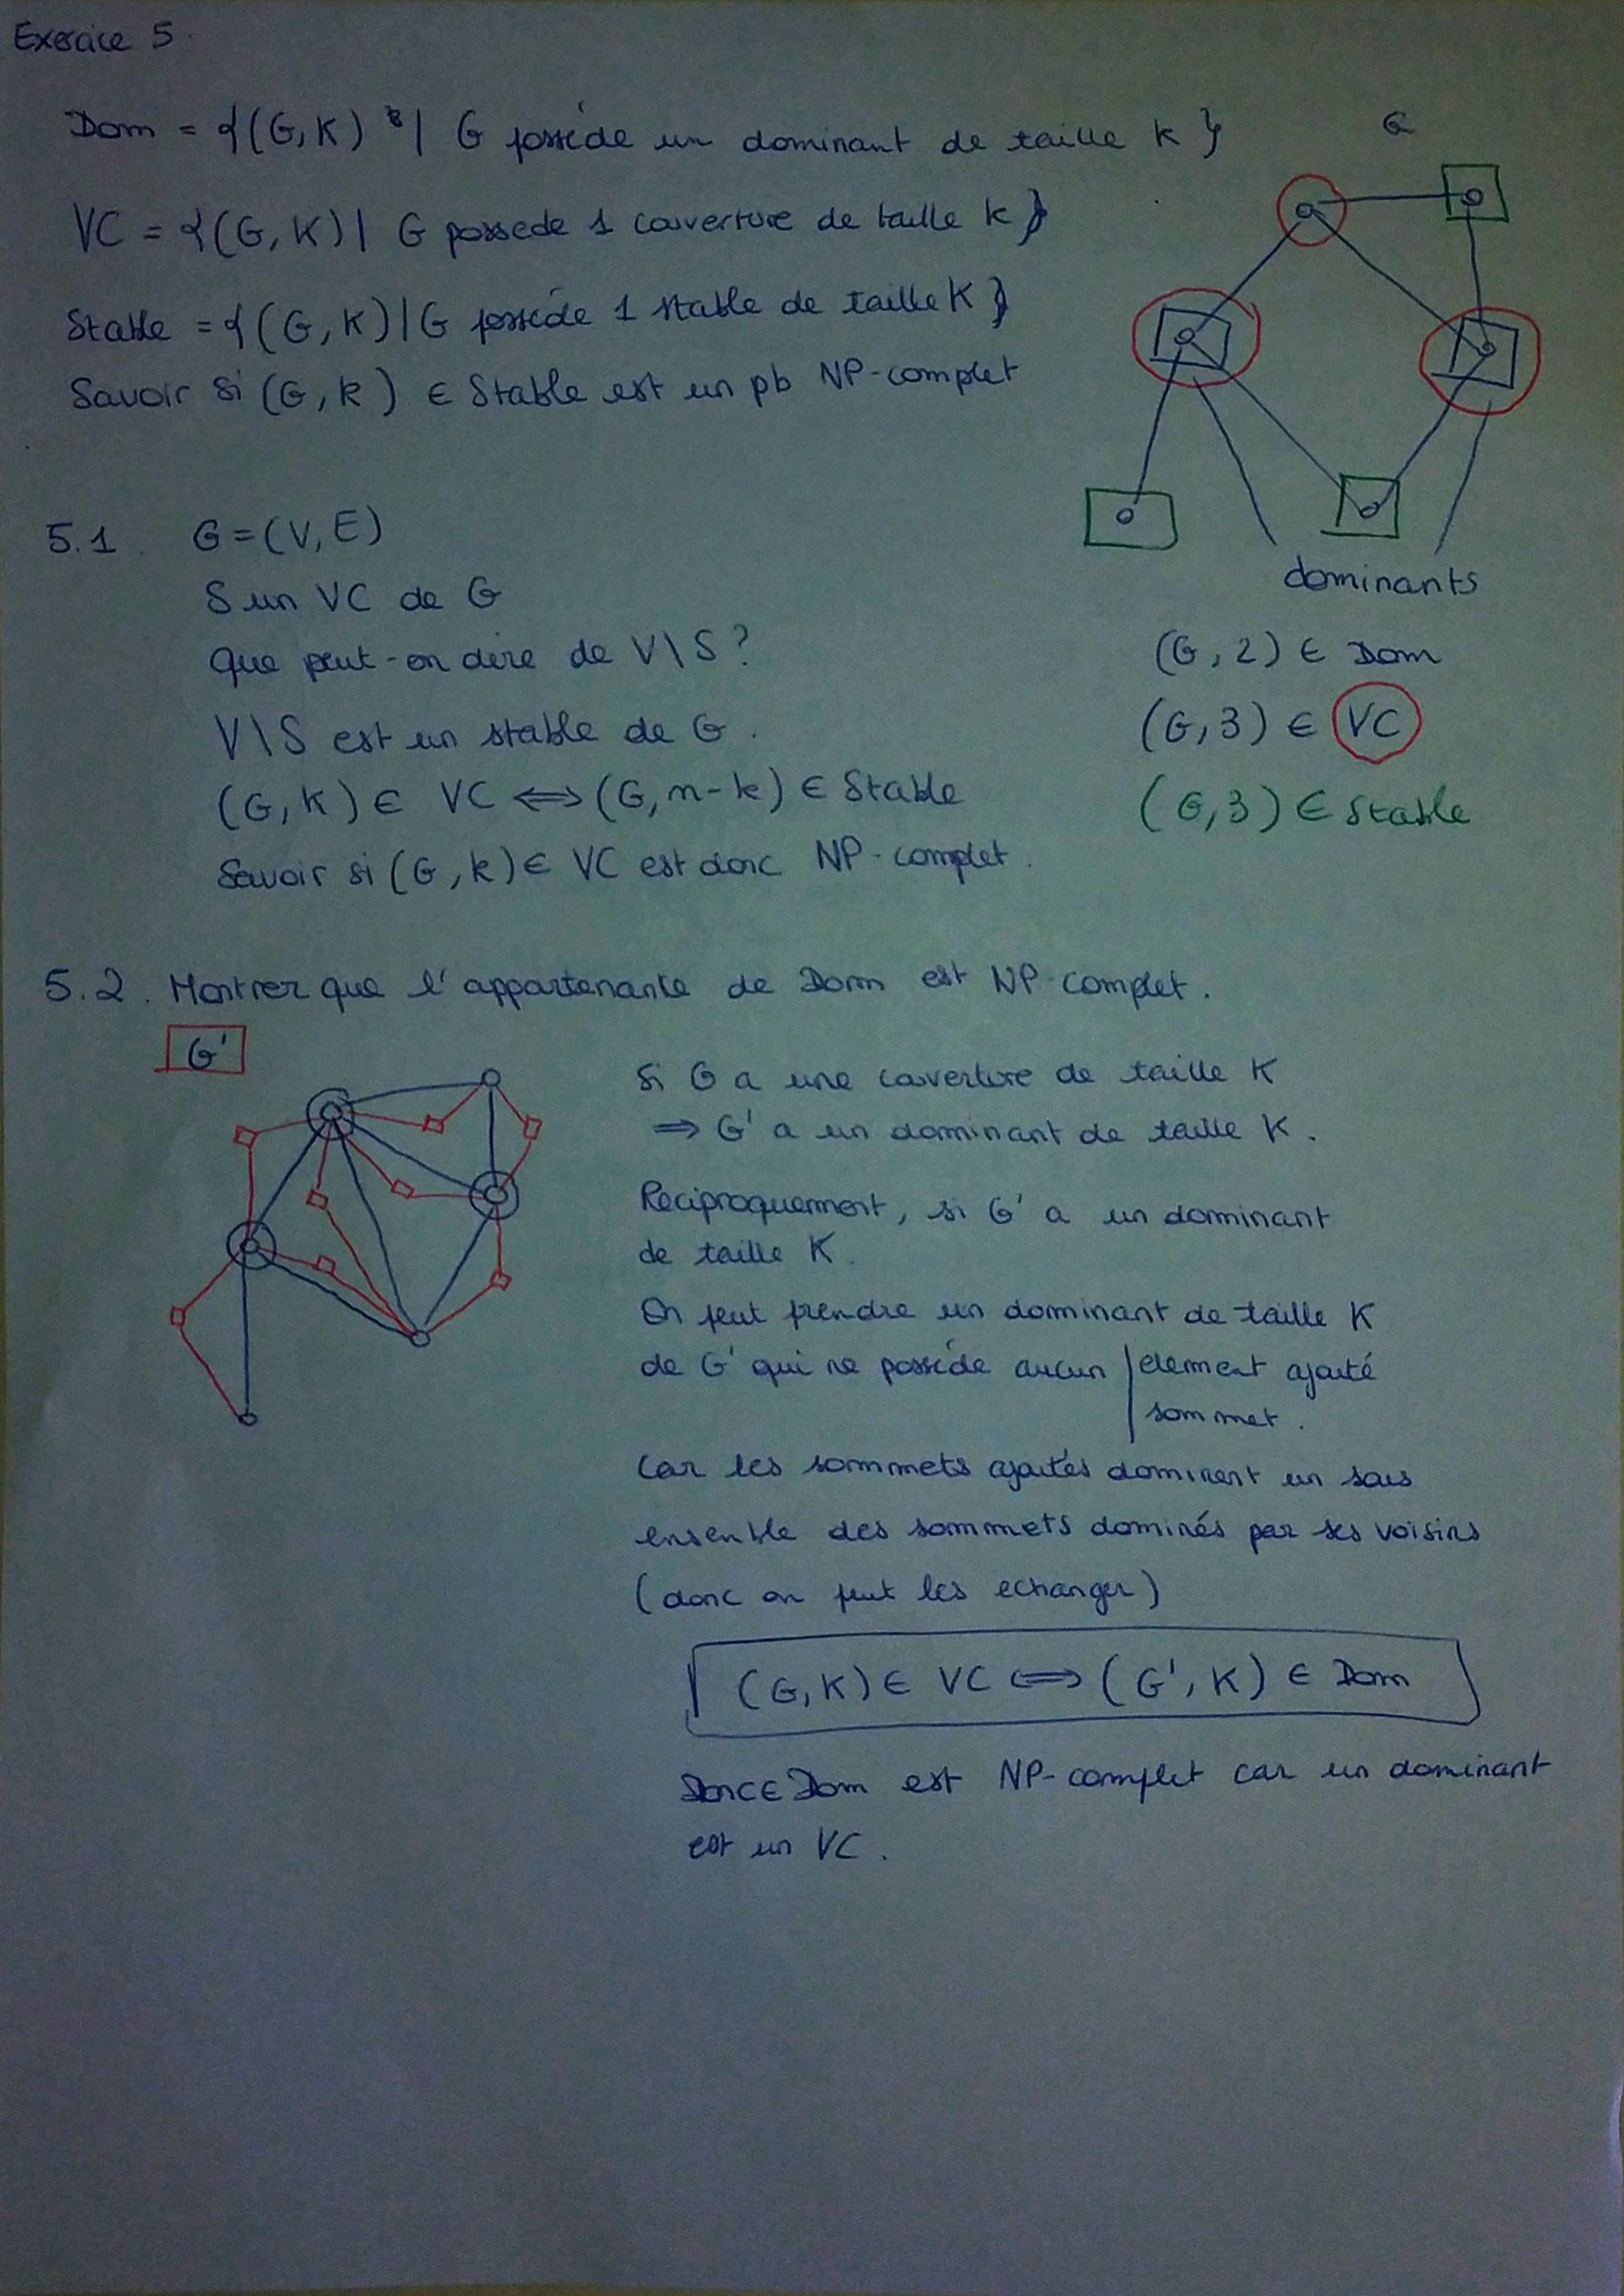 Exercice 5.
Dom = {(G,K) | G possède un dominant de taille K }
G
VC = {(G,K) | G possede 1 couverture de taille K }
Stable = {(G,K) | G possède 1 stable de taille K }
Savoir si (G,k) ∈ Stable est un pb NP-complet
dominants
(G,2) ∈ Dom
(G,3) ∈ VC
(G,3) ∈ Stable
5.1. G=(V,E)
S un VC de G
Que peut-on dire de V\S?
V\S est un stable de G.
(G,K) ∈ VC ⟺ (G,n-k) ∈ Stable
Savoir si (G,k) ∈ VC est donc NP-complet.
5.2. Montrer que l'appartenante de Dom est NP-complet.
G'
Si G a une couverture de taille K
⟹ G' a un dominant de taille K.
Reciproquement, si G' a un dominant
de taille K.
On peut prendre un dominant de taille K
de G' qui ne possède aucun | element ajouté
sommet.
Car les sommets ajoutés dominent un sous
ensenble des sommets dominés par ses voisins
(donc on peut les echanger)
(G,K) ∈ VC ⟺ (G',K) ∈ Dom
Donc ∈ Dom est NP-complet car un dominant
est un VC.